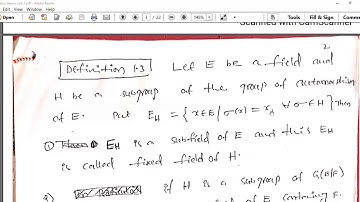 1 / 22
145%
Tools
Fill & Sign
Comment
Scanned with CamScanner
2
Definition 1.3 Let E be a field and
H be a subgroup of the group of automorphism
of E. put E_H = {x∈E / σ(x) = x, ∀ σ∈H} Then
① E_H is a subfield of E and this E_H
is called fixed field of H.
if H is a subgroup of G(E/F)
of E containing F.